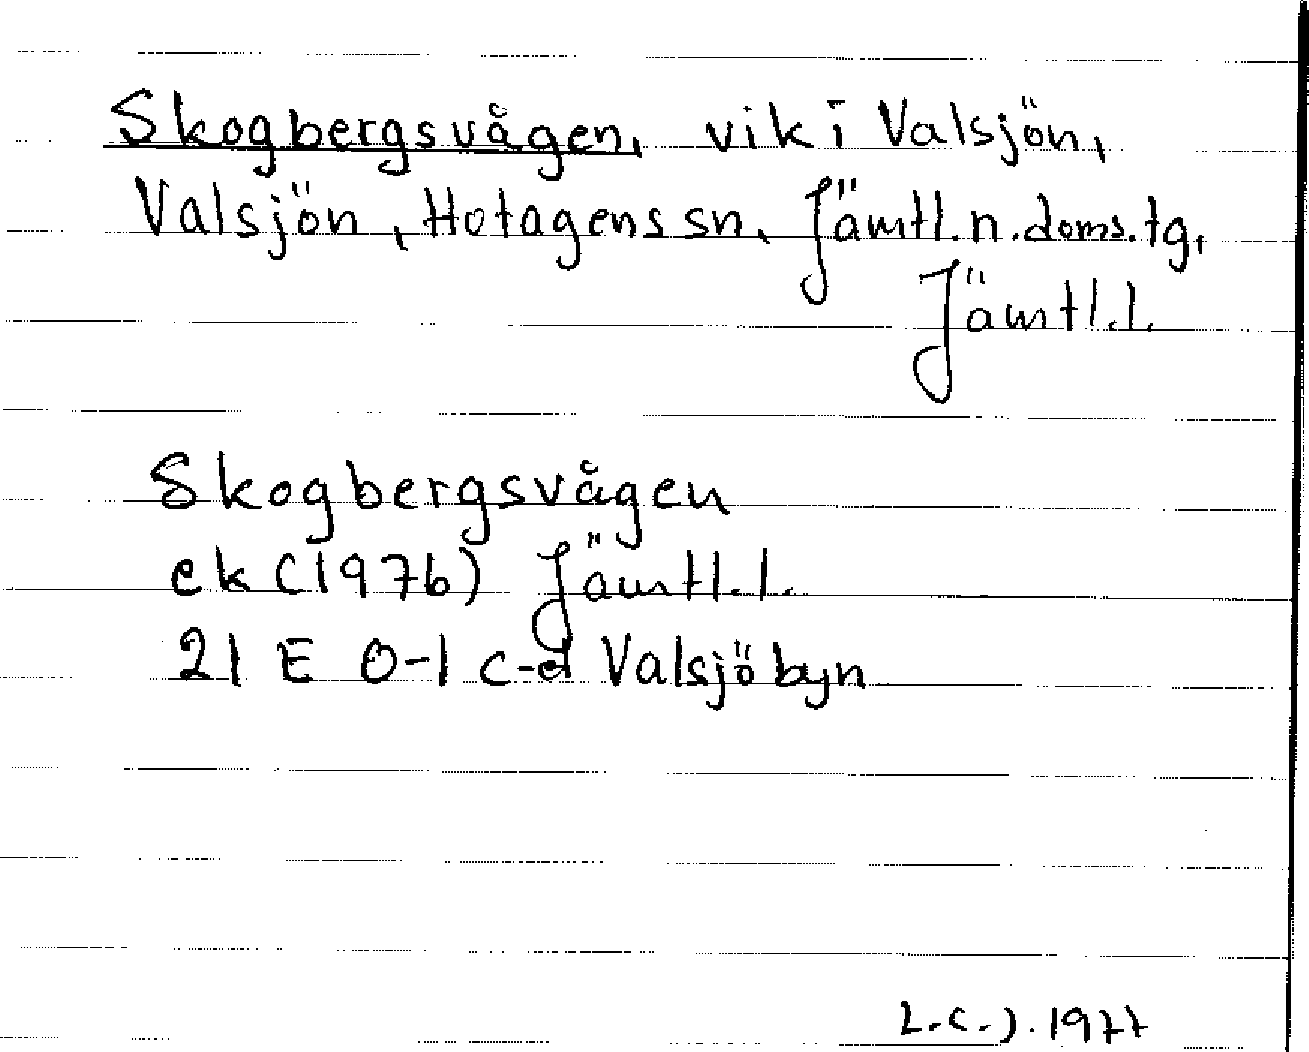 Skogbergsvågen, vik i Valsjön,
Valsjön, Hotagens sn, Jämtl. n. doms. tg,
Jämtl.l.
Skogbergsvågen
ek (1976) Jämtl.l.
21 E 0-1 c-d Valsjöbyn
L.C.J. 1977